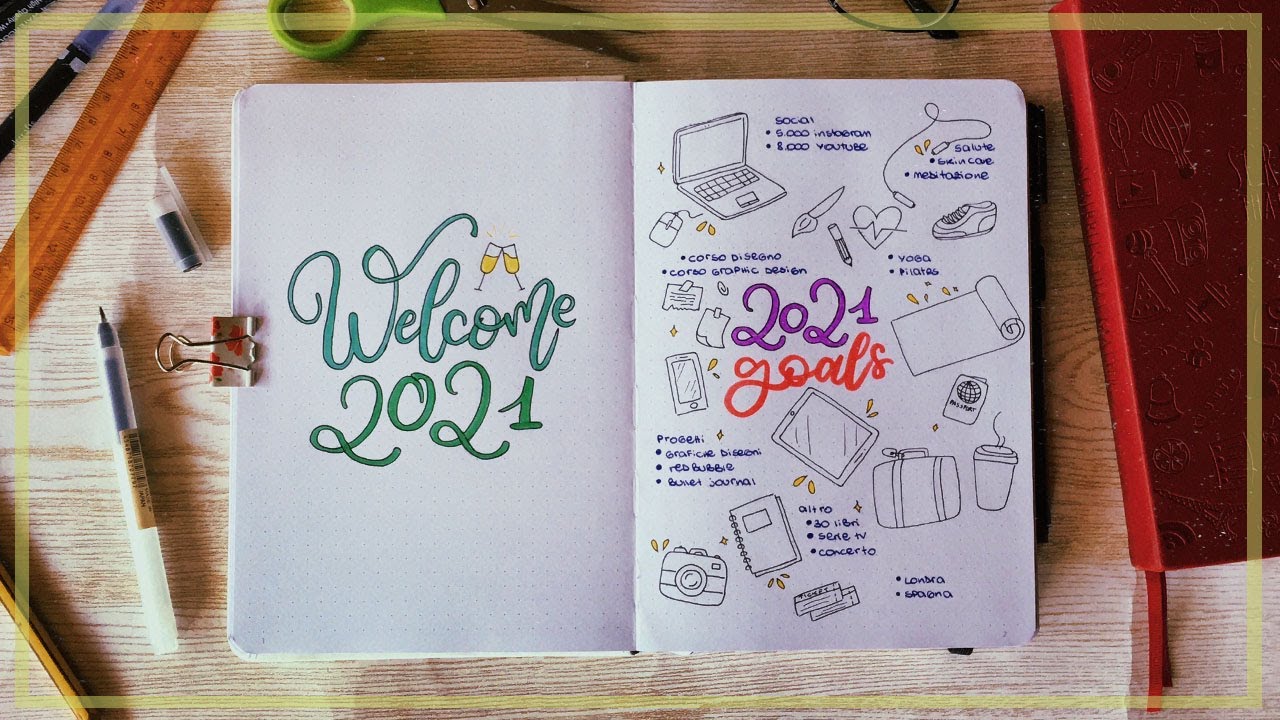 Welcome
2021
social
• 5.000 instagram
• 8.000 youtube
salute
• skin care
• meditazione
• corso disegno
• corso graphic design
• yoga
• pilates
2021
goals
PASSPORT
progetti
• grafiche disegni
• redbubble
• bullet journal
altro
• 30 libri
• serie tv
• concerto
• londra
• spagna
TICKET